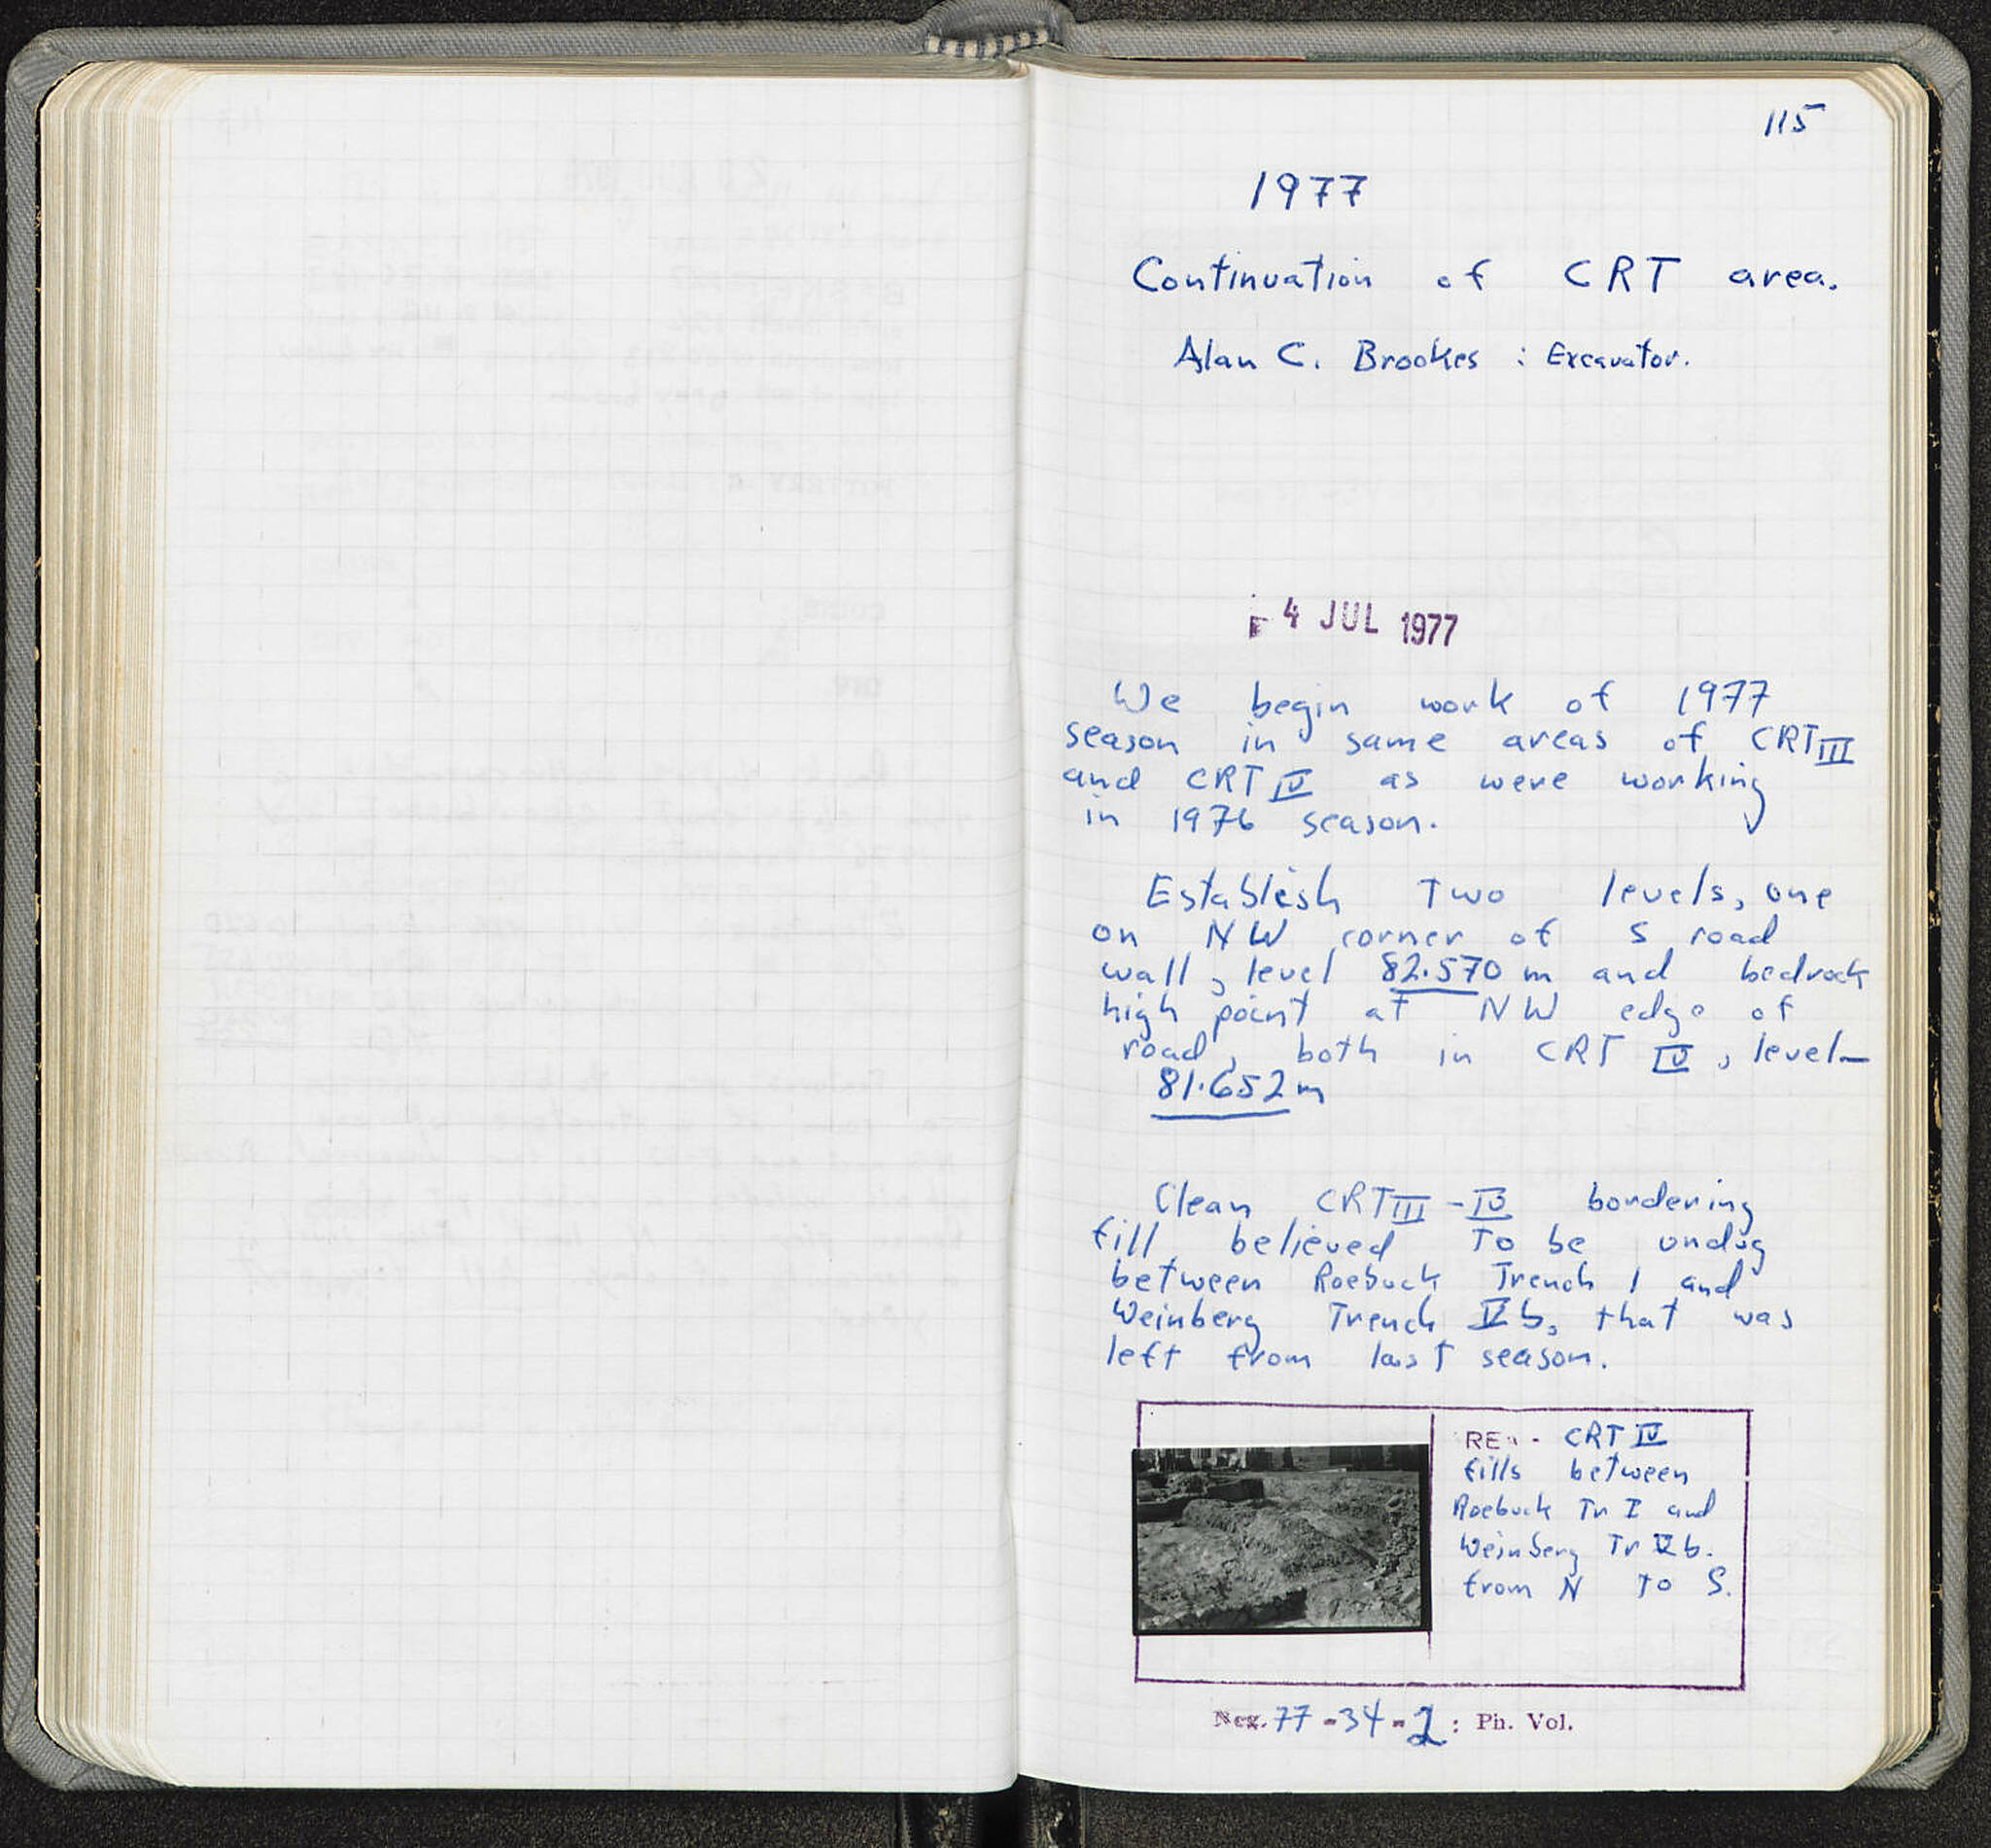 115
1977
Continuation of CRT area.
Alan C. Brookes : Excavator.
4 JUL 1977
We begin work of 1977
season in same areas of CRT III
and CRT IV as were working
in 1976 season.
Establish two levels, one
on NW corner of S road
wall, level 82.570 m and bedrock
high point at NW edge of
road, both in CRT IV, level—
81.652 m
Clean CRT III - IV bordering
fill believed to be undug
between Roebuck Trench 1 and
Weinberg Trench Vb, that was
left from last season.
CRT IV
fills between
Roebuck Tr I and
Weinberg Tr Vb.
from N to S.
Neg. 77-34-2 : Ph. Vol.